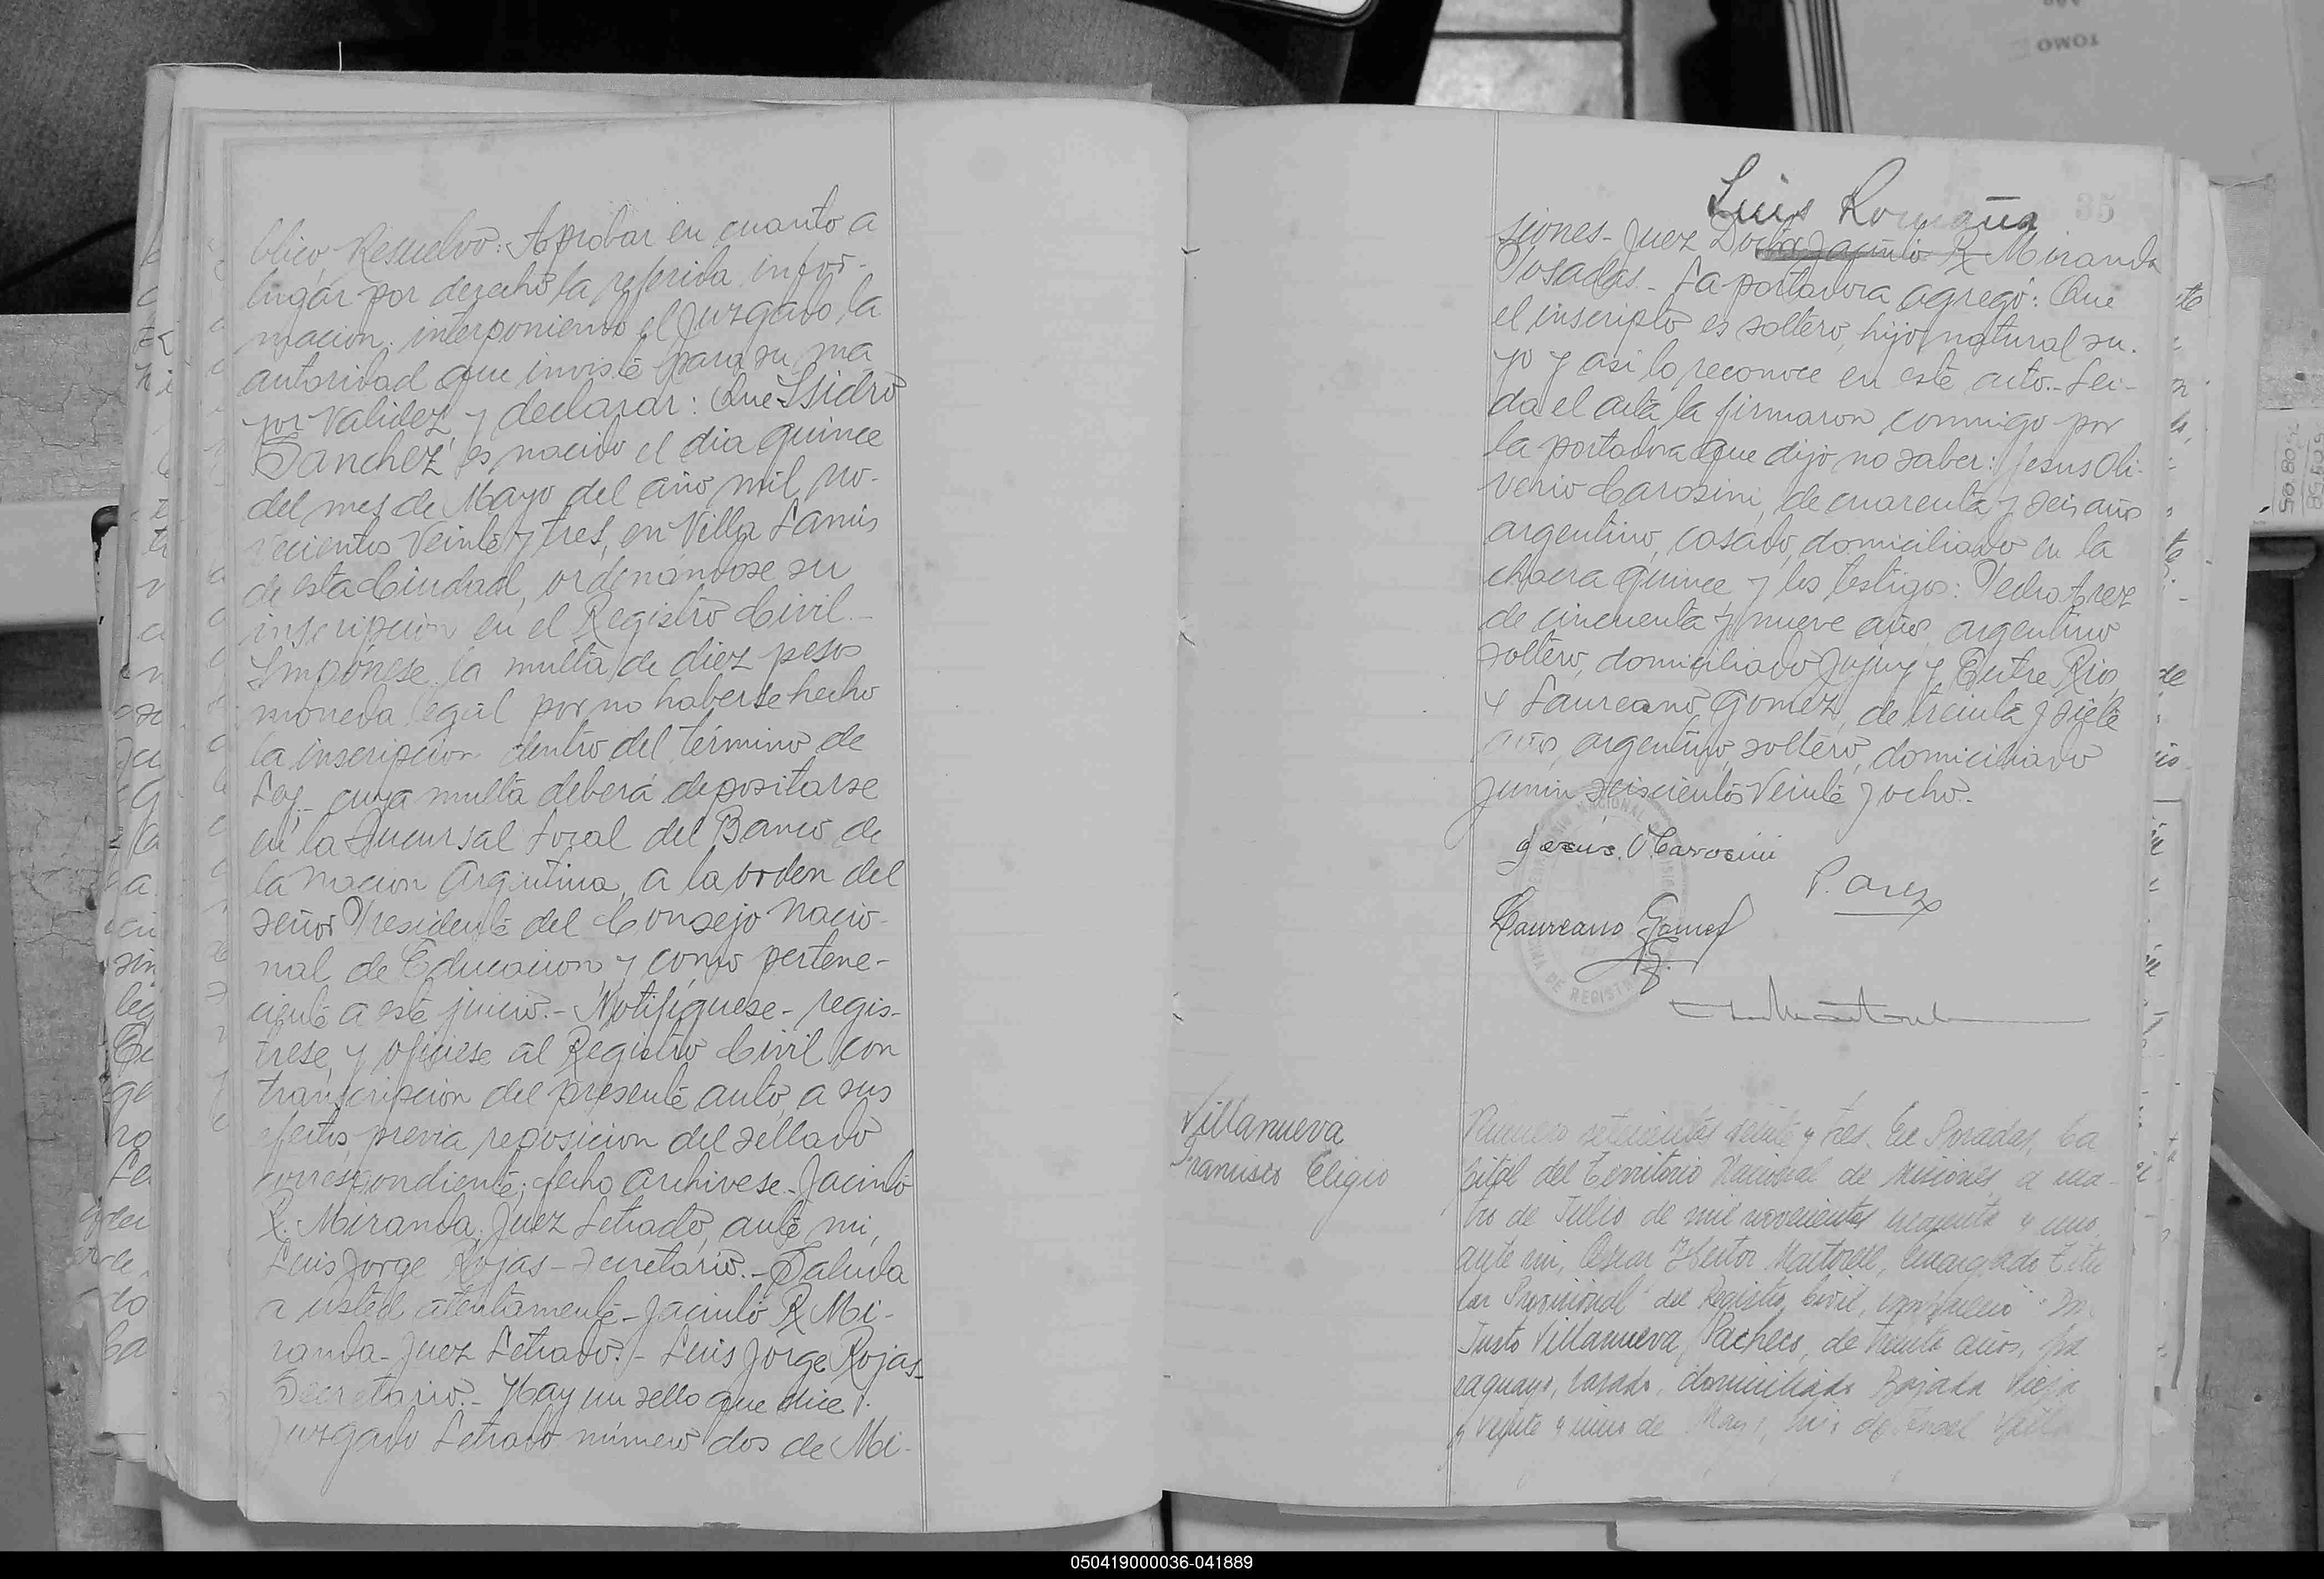 blico, Resuelvo: Aprobar en cuanto a
lugar por derecho la referida infor-
macion, interponiendo el Juzgado la
autoridad que inviste para su ma
yor validez, y declarar: Que Isidro
Sanchez es nacido el dia quince
del mes de Mayo del año mil no-
vecientos veinte y tres, en Villa Lanús
de esta Ciudad, ordenándose su
inscripcion en el Registro Civil.-
Impónese la multa de diez pesos
moneda legal por no haberse hecho
la inscripcion dentro del término de
Ley- cuya multa deberá depositarse
en la Sucursal Local del Banco de
la Nacion Argentina, a la orden del
señor Presidente del Consejo Nacio-
nal de Educacion y como pertene-
ciente a este juicio.- Notifíquese- regis-
trese, y oficiese al Registro Civil con
transcripcion del presente auto, a sus
efectos, previa reposicion del sellado
correspondiente; fecho archivese- Jacinto
R. Miranda, Juez Letrado, ante mi,
Luis Jorge Rojas- Secretario.- Saluda
a usted atentamente- Jacinto R. Mi-
randa- Juez Letrado.- Luis Jorge Rojas-
Secretario.- Hay un sello que dice:
Juzgado Letrado número dos de Mi-
TOMO
35
Luis
siones- Juez R. Miranda
Posadas.- La portadora agregó: Que
el inscripto es soltero, hijo natural su-
yo y asi lo reconoce en este acto.- Lei-
da el acta la firmaron conmigo por
la portadora que dijo no saber: Jesus Oli-
verio Carosini, de cuarenta y seis años
argentino, casado, domiciliado en la
chacra quince y los testigos: Pedro Arez
de cincuenta y nueve años, argentino
soltero, domiciliado Jujuy y Entre Rios,
y Laureano Gomez, de treinta y siete
años, argentino, soltero, domiciliado
Junin seiscientos veinte y ocho.-
Jesús O. Carosini
P. Arez
Laureano Gomez
Villanueva
Francisco Eligio
Numero setecientos veinte y tres. En Posadas, Ca
pital del Territorio Nacional de Misiones, a cua-
tro de Julio de mil novecientos cuarenta y uno,
ante mi, Cesar Hector Martorell, Encargado Titu
lar Provisional del Registro Civil, compareció Don
Justo Villanueva Pacheco, de treinta años, pa
raguayo, casado, domiciliado Bajada Vieja
y veinte y cinco de Mayo, hijo de Angel
050419000036-041889